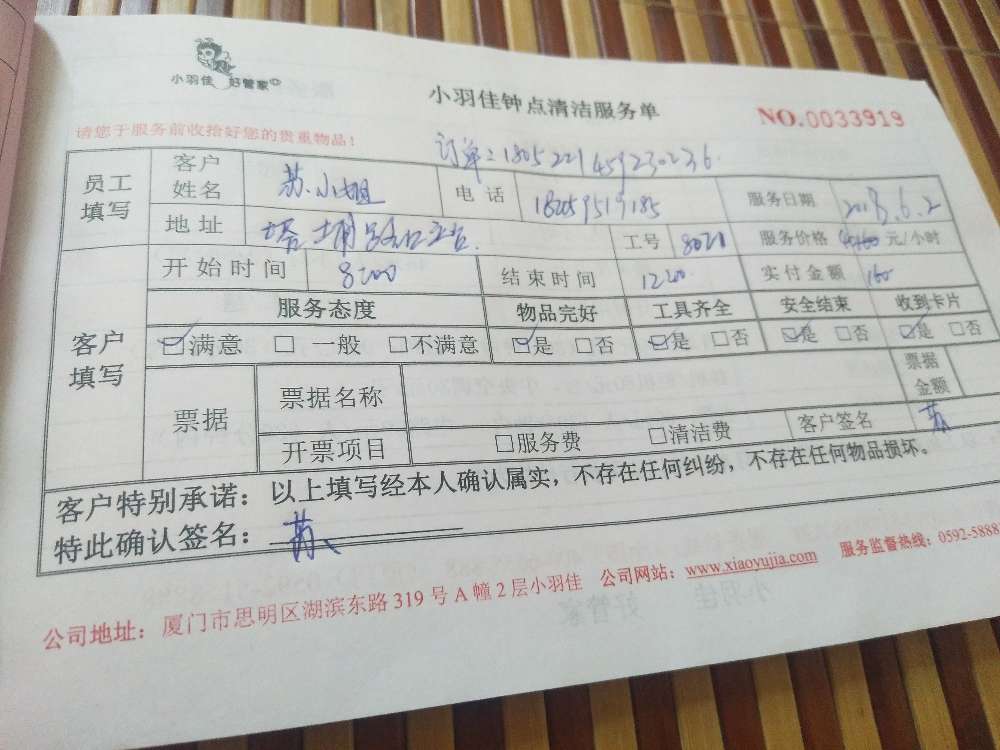 小羽佳 好管家
小羽佳钟点清洁服务单
NO.0033919
请您于服务前收拾好您的贵重物品!
订单:1805221459230236
员工填写 客户姓名 苏小姐 电话 18259519185 服务日期 2018.6.2
地址 塔埔路 工号 8021 服务价格 元/小时
客户填写 开始时间 8:00 结束时间 12:00 实付金额 160
服务态度 物品完好 工具齐全 安全结束 收到卡片
☑满意 □一般 □不满意 ☑是 □否 ☑是 □否 ☑是 □否 ☑是 □否
票据 票据名称 票据金额
开票项目 □服务费 □清洁费 客户签名 苏
客户特别承诺:以上填写经本人确认属实,不存在任何纠纷,不存在任何物品损坏。
特此确认签名:苏
公司地址:厦门市思明区湖滨东路319号A幢2层小羽佳 公司网站:www.xiaoyujia.com 服务监督热线:0592-5888